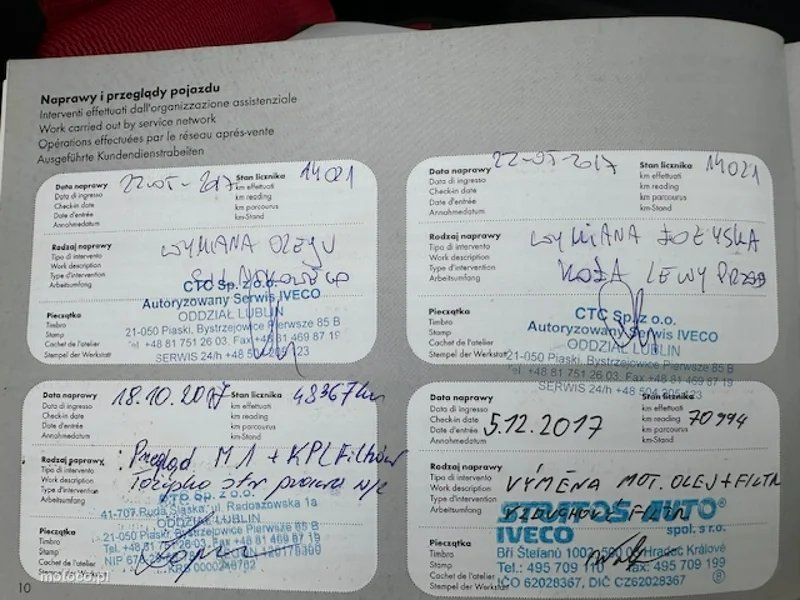 Naprawy i przeglądy pojazdu
Interventi effettuati dall'organizzazione assistenziale
Work carried out by service network
Opérations effectuées par le réseau aprés-vente
Ausgeführte Kundendienstrabeiten
Data naprawy
Data di ingresso
Check-in date
Date d'entrée
Annahmedatum
22-05-2017
Stan licznika
km effettuati
km reading
km parcourus
km-Stand
14021
Rodzaj naprawy
Tipo di intervento
Work description
Type d'intervention
Arbeitsumfang
WYMIANA OLEJU
Pieczątka
Timbro
Stamp
Cachet de l'atelier
Stempel der Werkstatt
CTC Sp. z o.o.
Autoryzowany Serwis IVECO
ODDZIAŁ LUBLIN
21-050 Piaski, Bystrzejowice Pierwsze 85 B
Tel. +48 81 751 26 03, Fax +48 81 469 87 19
SERWIS 24/h
Data naprawy
Data di ingresso
Check-in date
Date d'entrée
Annahmedatum
22-05-2017
Stan licznika
km effettuati
km reading
km parcourus
km-Stand
14021
Rodzaj naprawy
Tipo di intervento
Work description
Type d'intervention
Arbeitsumfang
WYMIANA ŁOŻYSKA
KOŁA LEWY PRZÓD
Pieczątka
Timbro
Stamp
Cachet de l'atelier
Stempel der Werkstatt
CTC Sp. z o.o.
Autoryzowany Serwis IVECO
ODDZIAŁ LUBLIN
21-050 Piaski, Bystrzejowice Pierwsze 85 B
Tel. +48 81 751 26 03, Fax +48 81 469 87 19
SERWIS 24/h
Data naprawy
Data di ingresso
Check-in date
Date d'entrée
Annahmedatum
18.10.2017
Stan licznika
km effettuati
km reading
km parcourus
km-Stand
48367 km
Rodzaj naprawy
Tipo di intervento
Work description
Type d'intervention
Arbeitsumfang
Przegląd M1 + KPL Filtrów
Łożysko
Pieczątka
Timbro
Stamp
Cachet de l'atelier
Stempel der Werkstatt
CTC Sp. z o.o.
41-707 Ruda Śląska, ul. Radoszowska 1a
ODDZIAŁ LUBLIN
21-050 Piaski, Bystrzejowice Pierwsze 85 B
Data naprawy
Data di ingresso
Check-in date
Date d'entrée
Annahmedatum
5.12.2017
Stan licznika
km effettuati
km reading
km parcourus
km-Stand
70994
Rodzaj naprawy
Tipo di intervento
Work description
Type d'intervention
Arbeitsumfang
VÝMĚNA MOT. OLEJ + FILTR
VZDUCHOVÉ FILTR
Pieczątka
Timbro
Stamp
Cachet de l'atelier
Stempel der Werkstatt
IVECO
spol. s r.o.
Bří Štefanů
Hradec Králové
IČO 62028367, DIČ CZ62028367
10